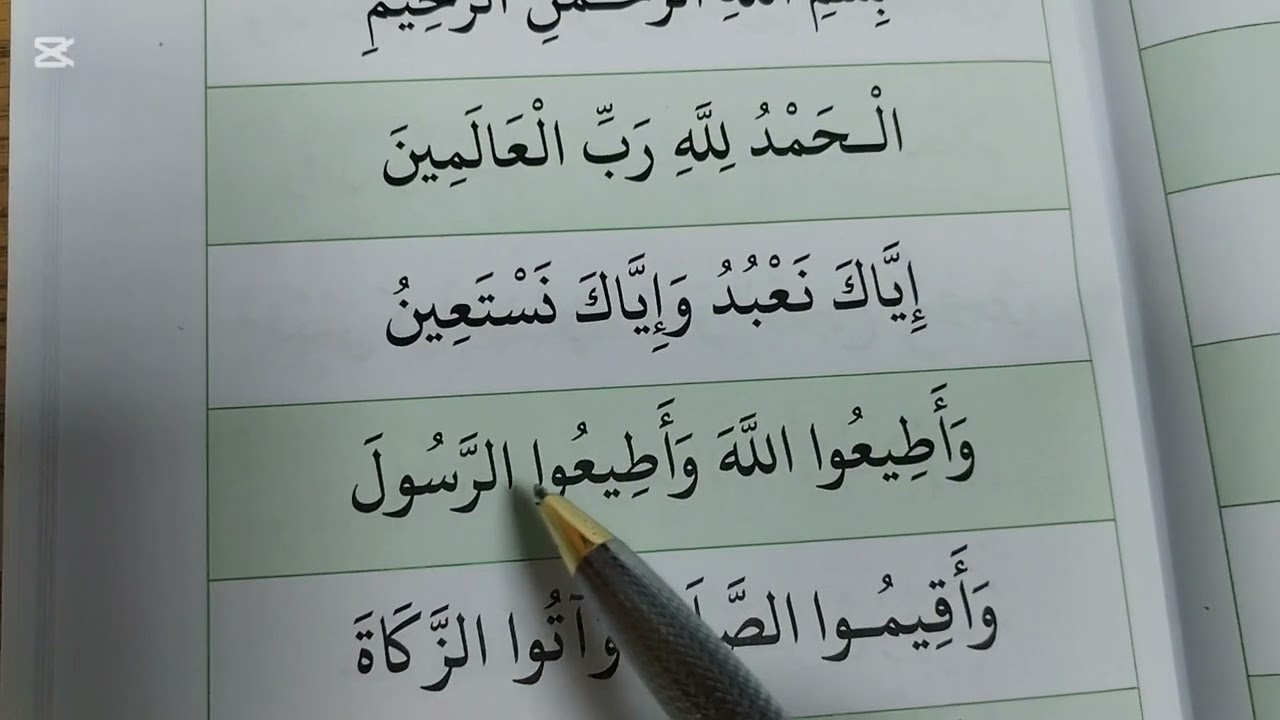 بِسْمِ اللَّهِ الرَّحْمَنِ الرَّحِيمِ
الْـحَمْدُ لِلَّهِ رَبِّ الْعَالَمِينَ
إِيَّاكَ نَعْبُدُ وَإِيَّاكَ نَسْتَعِينُ
وَأَطِيعُوا اللَّهَ وَأَطِيعُوا الرَّسُولَ
وَأَقِيمُـوا وَآتُوا الزَّكَاةَ